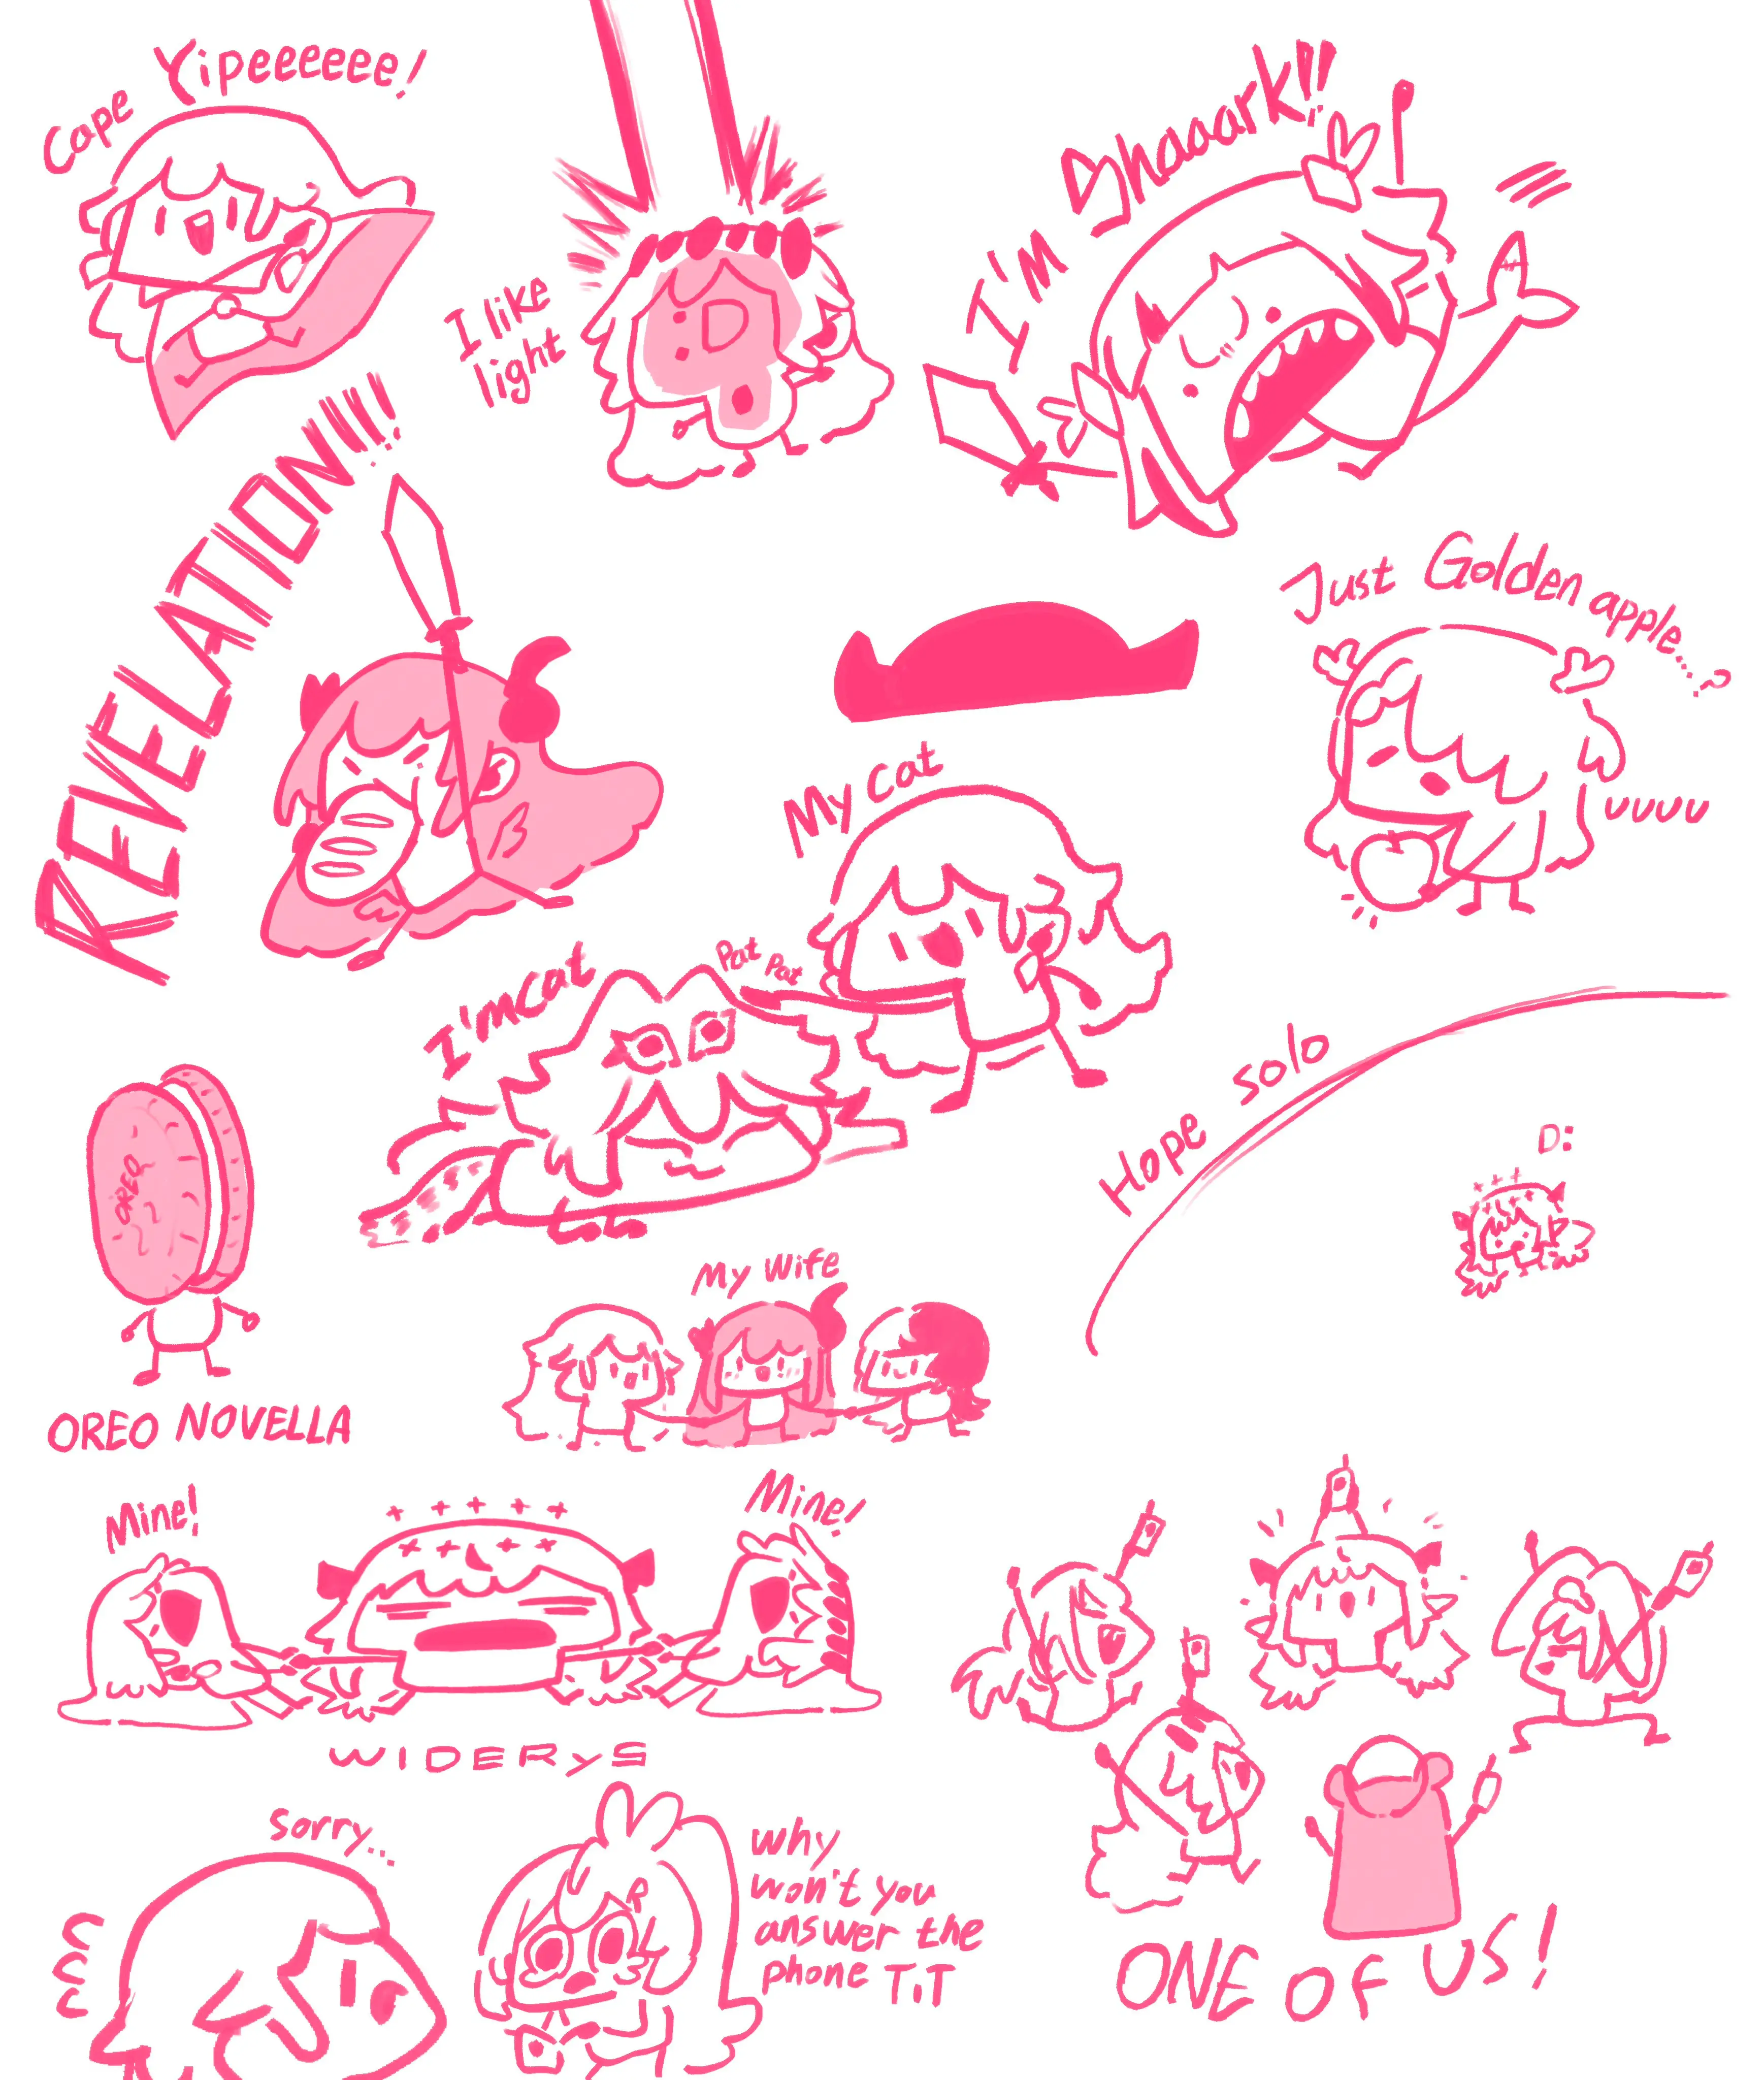 Cape Yipeeeeee!
I like
light
I'M Shaaark!!
REVELATION!!!
Just Golden apple...?
uuuu
My cat
I'm cat
Pat Pat
Hope solo
D:
OREO
OREO NOVELLA
My wife
Mine!
Mine!
WIDERyS
ONE OF US!
sorry...
why
won't you
answer the
phone T.T